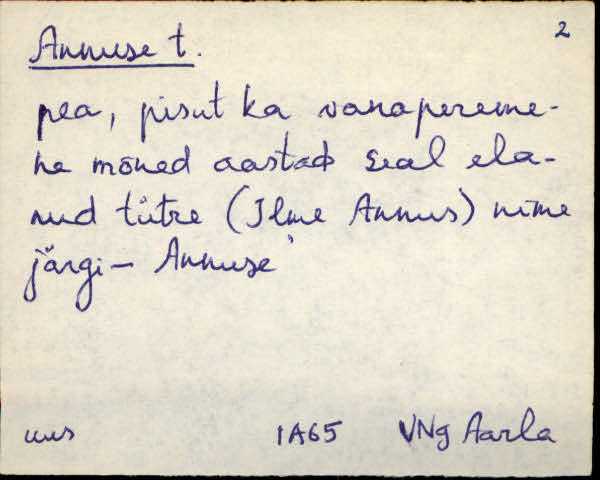 2
Annuse t.
pea, pisut ka vanapereme-
he mõned aastad seal ela-
nud tütre (Ilme Annus) nime
järgi – Annuse'
uus IA65 VNg Aarla